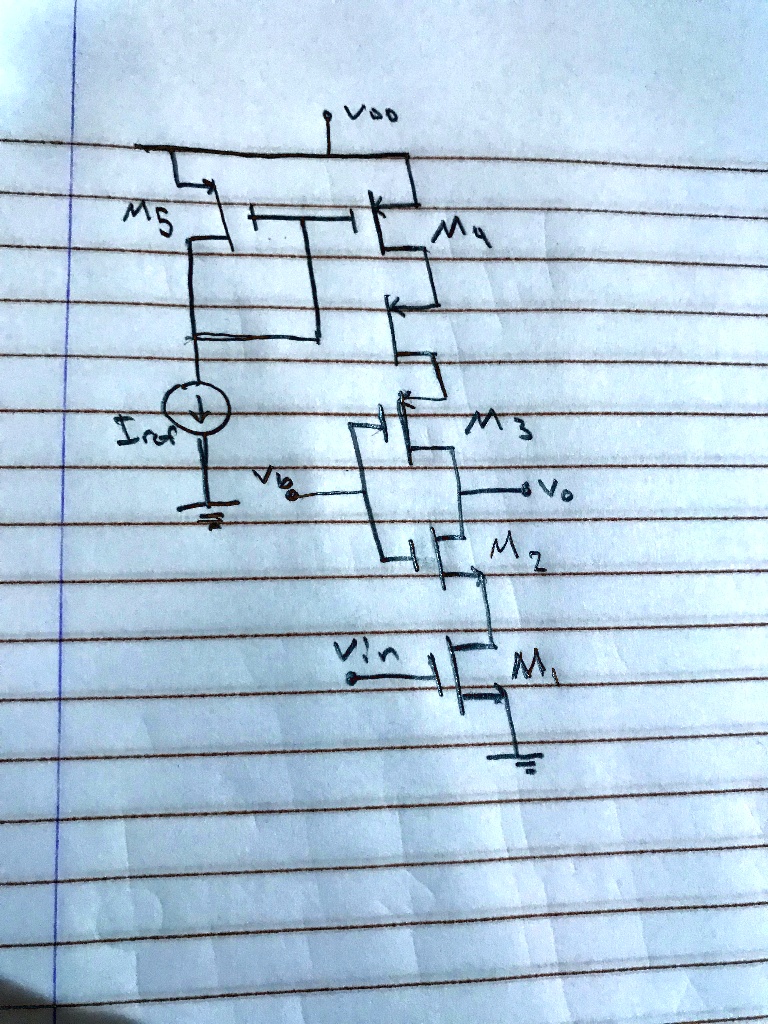 VDD
M5
M4
Iref
M3
Vb
Vo
M2
Vin
M1